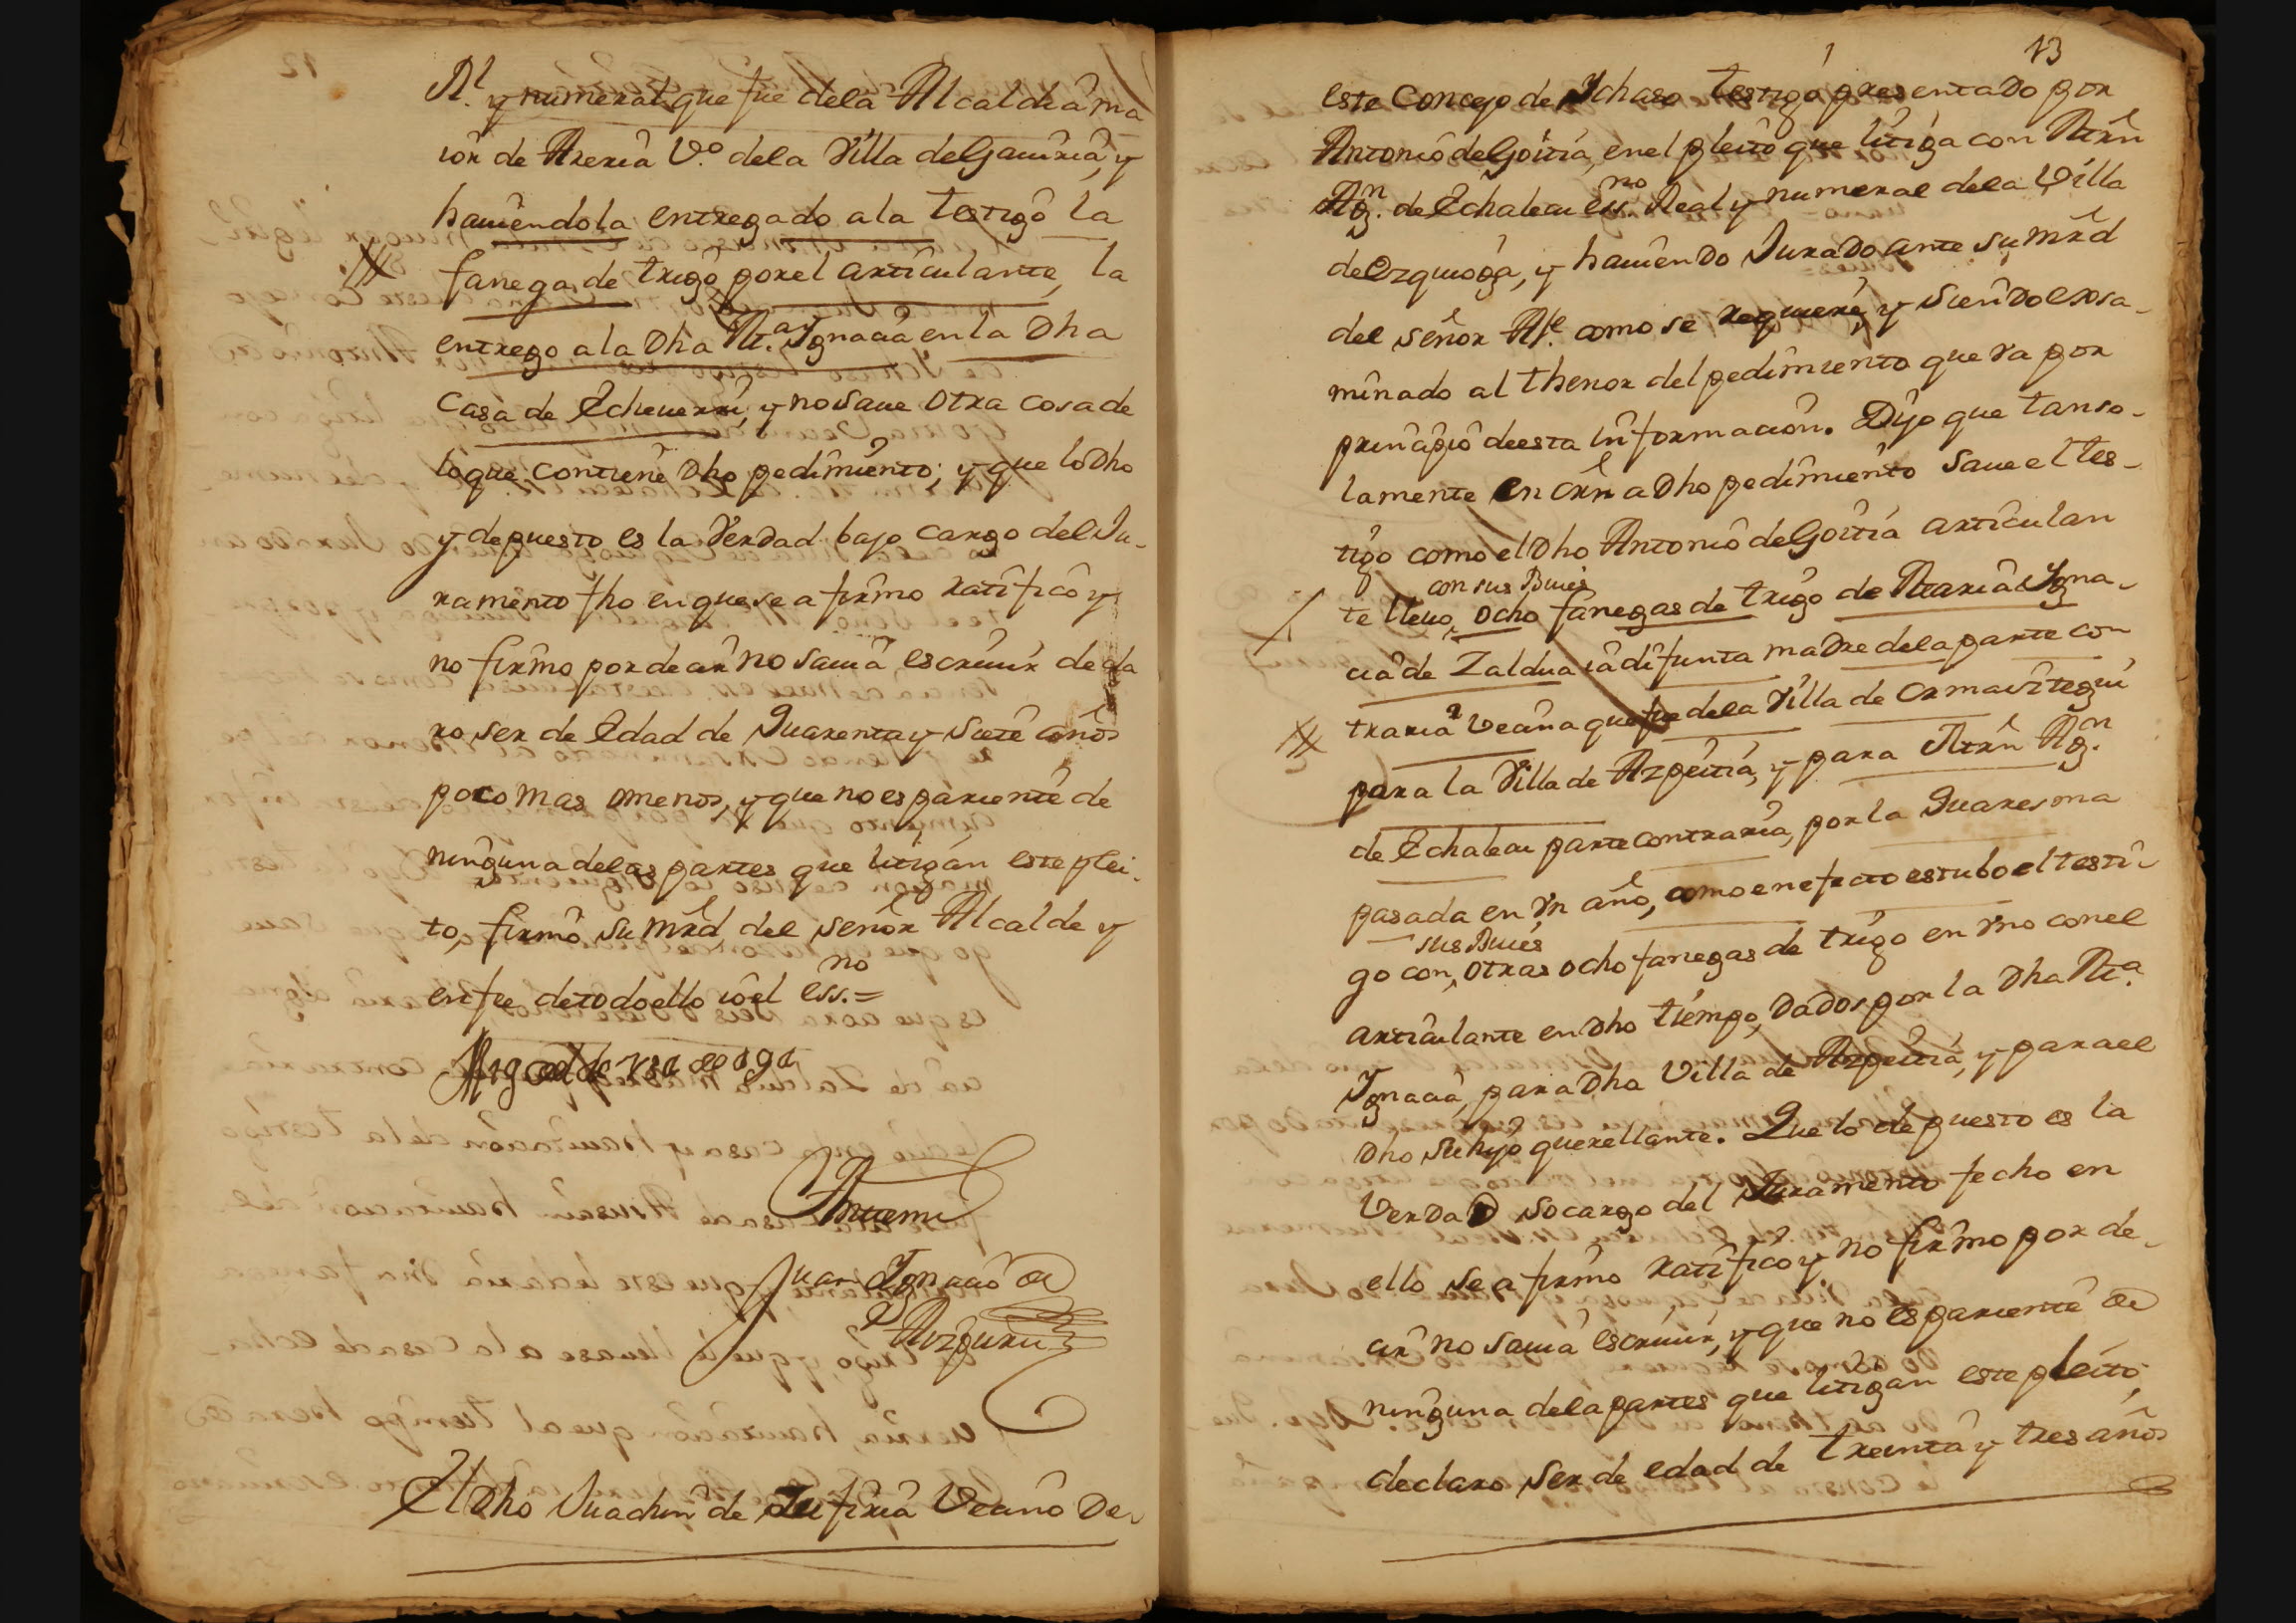 Rl. y numeral que fue dela Alcaldia ma
ior de Areria V.º dela Villa de Gauiria, y
hauiendola entregado ala testigo la
fanega de trigo por el articulante, la
entrego ala Dha Mª. Ygnacia en la Dha
Casa de Echeuerri, y no saue otra cosa de
lo que contiene Dho pedimiento; y que lo Dho
y depuesto es la Verdad bajo cargo del Ju-
ramento fho en que se afirmo ratifico y
no firmo por decir no sauia escriuir decla
ro ser de Edad de Quarenta y Siete años
poco mas omenos, y que no es pariente de
ninguna delas partes que litigan este plei-
to, firmo su mrd del señor Alcalde y
en fee de todo ello io el essno.=
Antemi
Juan Ygnacio de
Aizpuru
El Dho Juachin de Vecino De
13
este Concejo de Ychaso testigo presentado por
Antonio de Goitia, en el pleito que litiga con Mrn
Agn. de Echaleau essno. Real y numeral dela Villa
de Ezquioga, y hauiendo Jurado ante su mrd
del señor Alle. como se requiere, y siendo exsa-
minado al thenor del pedimiento que va por
principio de esta informacion. Dijo que tan so-
lamente en orn a Dho pedimiento saue el tes-
tigo como el Dho Antonio de Goitia articulan
con sus Bueies
te lleuo, ocho fanegas de trigo de Maria Ygna-
cia de Zaldua ia difunta madre dela parte con
traria vecina que fue dela Villa de Ormaiztegui
para la Villa de Azpeitia, y para Mrn Agn.
de Echaleau parte contraria, por la Quaresma
pasada en vn año, como en efecto estubo el testi-
sus Bueies
go con, otras ocho fanegas de trigo en vno con el
articulante en Dho tiempo, Dados por la Dha Mª.
Ygnacia, para Dha Villa de Azpeitia, y para el
Dho su hijo querellante. Que lo depuesto es la
Verdad so cargo del Juramento fecho en
ello se afirmo ratifico y no firmo por de-
cir no sauia escriuir, y que no es pariente de
ninguna dela partes que litigan este pleito,
declaro ser de edad de treinta y tres años